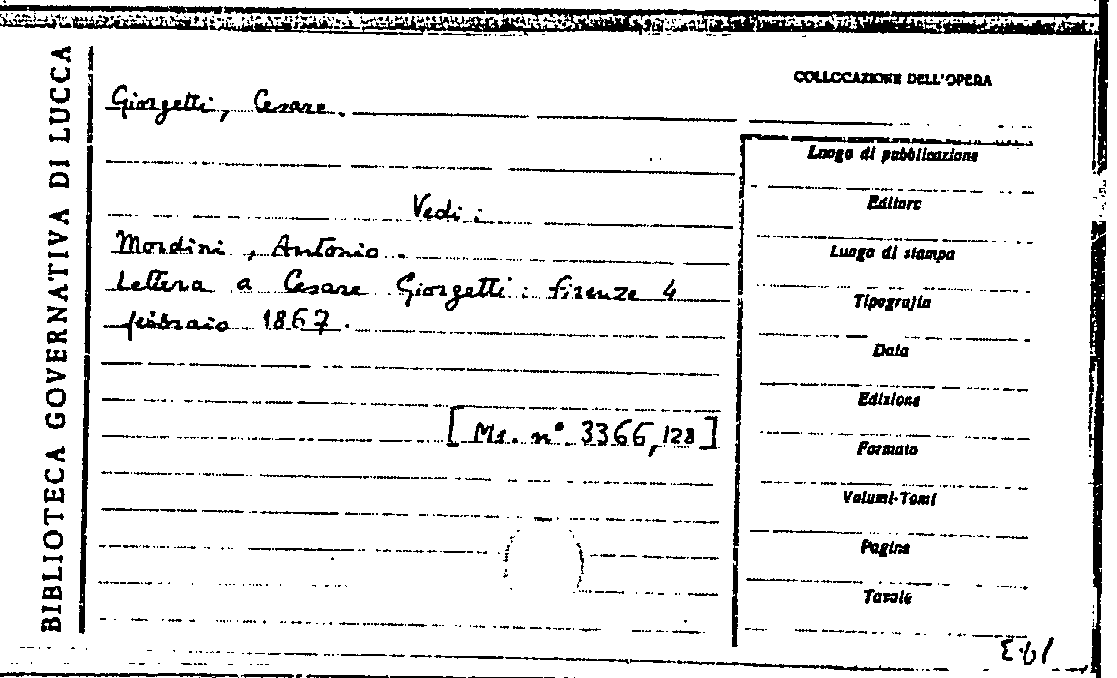 BIBLIOTECA GOVERNATIVA DI LUCCA
COLLOCAZIONE DELL'OPERA
Giorgetti, Cesare.
Vedi:
Mordini, Antonio.
Lettera a Cesare Giorgetti: Firenze 4
febbraio 1867.
[Ms. n° 3366,128]
Luogo di pubblicazione
Editore
Luogo di stampa
Tipografia
Data
Edizione
Formato
Volumi-Tomi
Pagine
Tavole